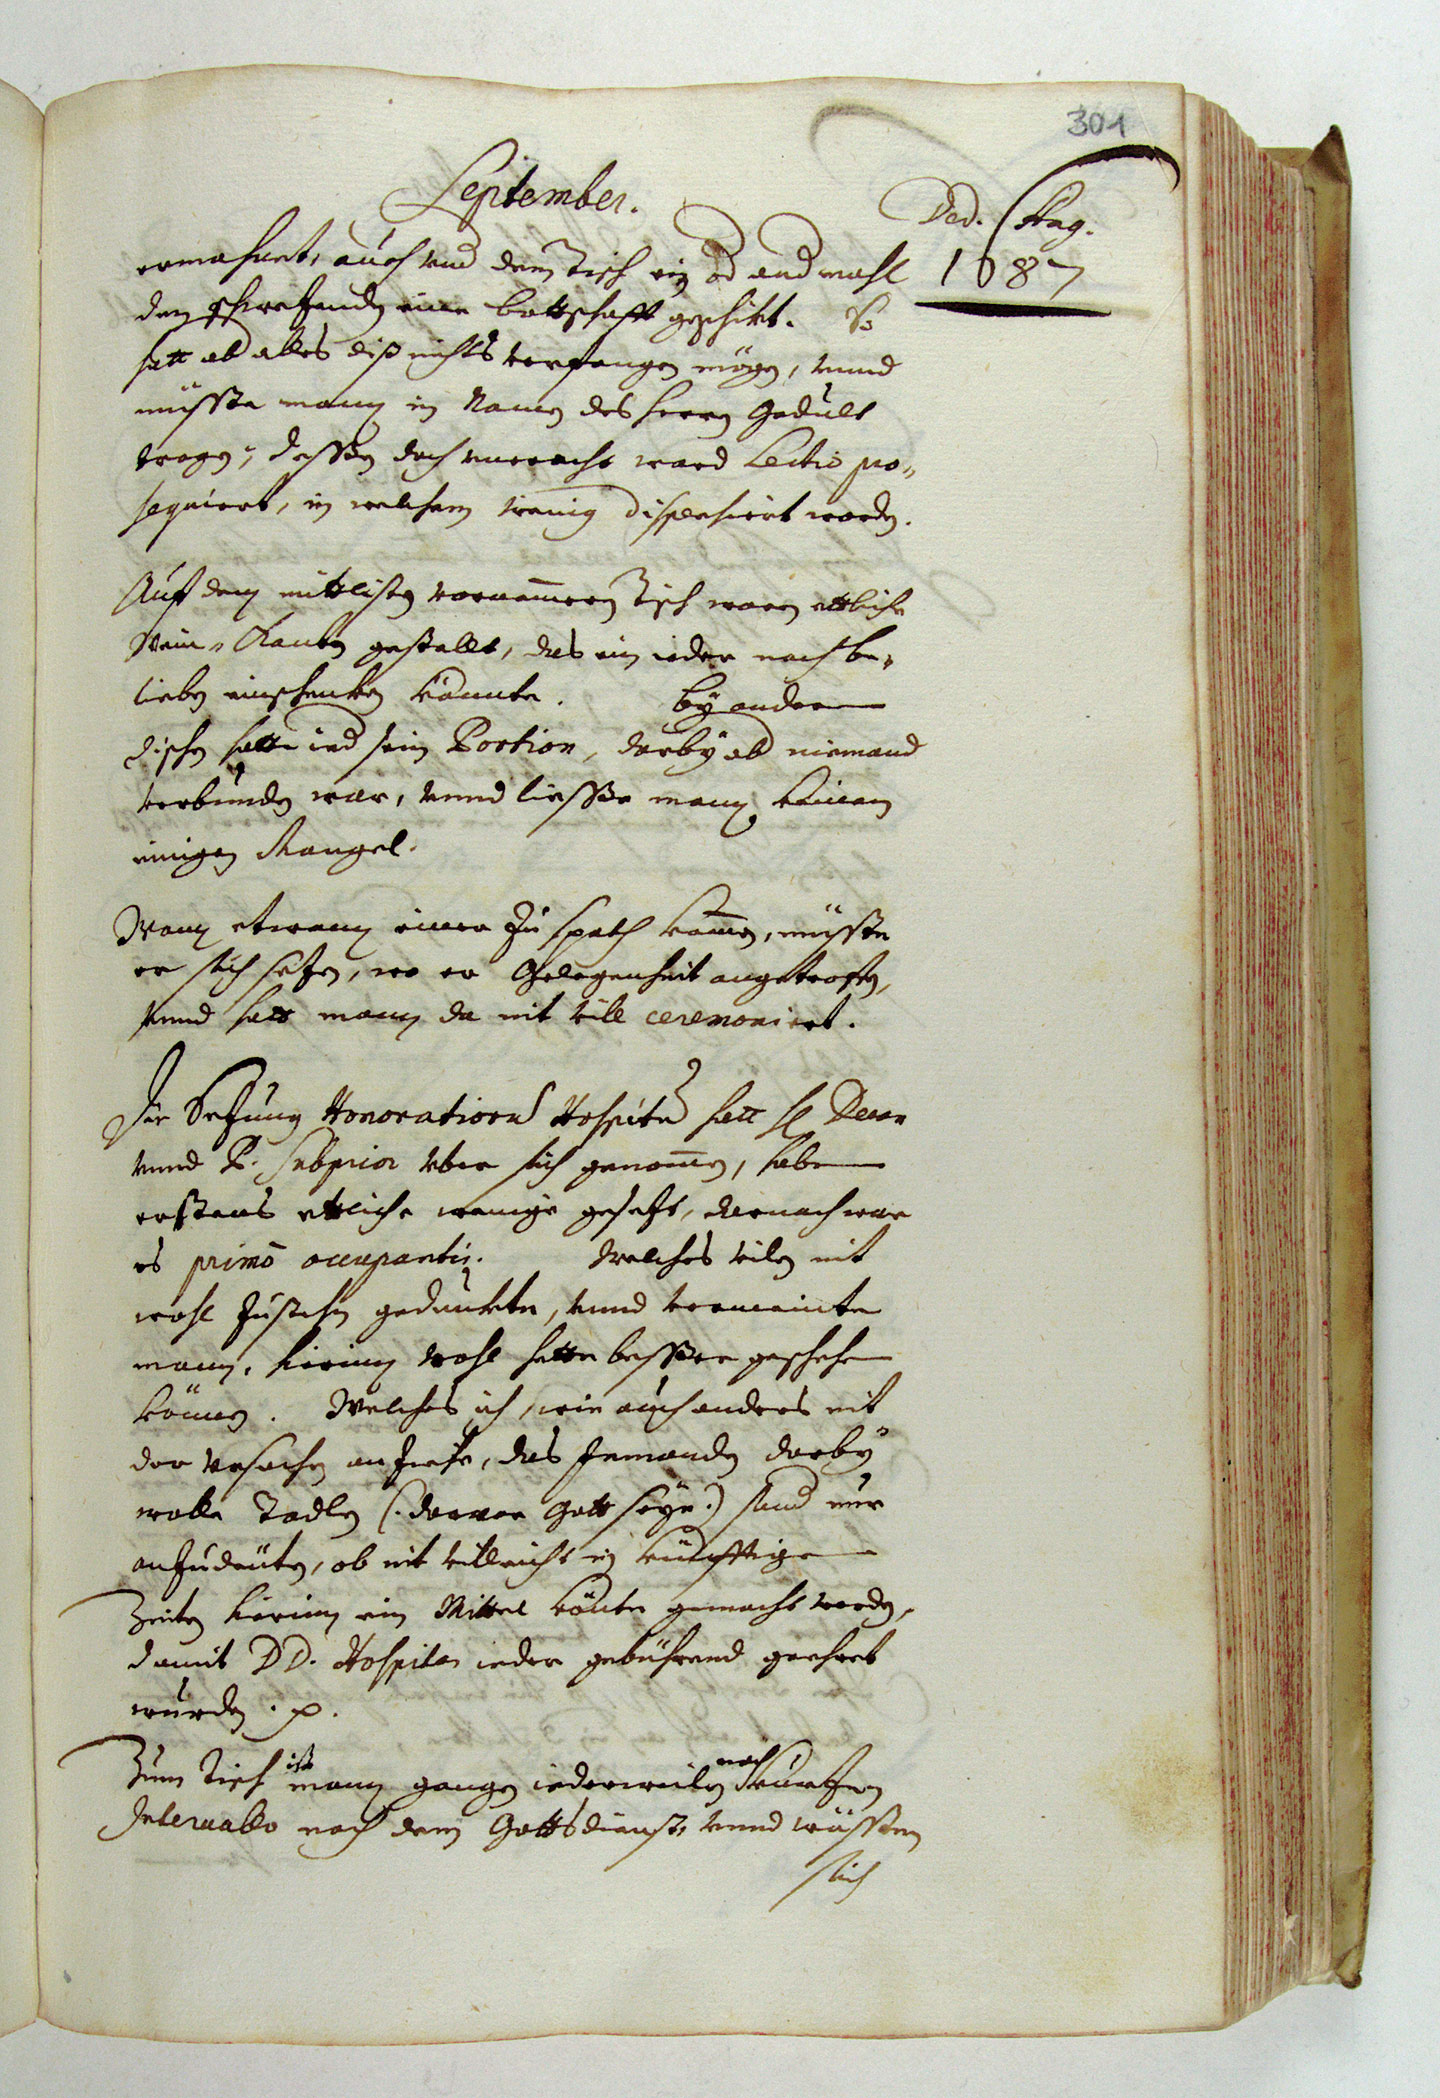 301
September.
Ded. Mag.
1687
ermahnet, auch vnd dem Tisch ein od and mahl
den schwetzenden eine bottschafft geschikt. Es
hatt ab alles diß nichts verfangen mögen, vnnd
müsste mann in Namen des Herren Gedult
tragen; dessen doch vneracht ward Lectio pro-
sequiert, in welchem wenig dispensiert worden.
Auf dem mittlisten vornemmeren Tisch waren ettliche
Wein-Kanten gestellt, das ein ieder nach be-
lieben einschenken könnte. By anderen
dischen hatte ied sein Portion, darby ab niemand
verbunden war, vnnd liesse mann keinem
einigen Mangel.
Wann etwann einer zu spath kommen, müsste
er sich setzen, wo er Gelegenheit angetroffen,
vnnd hatt mann da nit vill ceremoniert.
Die Setzung Honoratiorum Hospitum hatt H. Decan
vnnd P. Subprior vber sich genommen, haben
erstens ettliche wenige gesetzt, darnach war
es primo occupantis. Welches vilen nit
wohl zustehen gedunkte, vnnd vermeinte
mann, hierinn wohl hette besser geschehen
können. Welches ich, wie auch anders nit
der vrsachen anziehe, das jemanden darby
wolle Tadlen (: darvor Gott seye :) sund nur
anzudeüten, ob nit villeicht in künfftigen
Zeiten hierinn ein Mittel könte gemacht werden,
damit DD. Hospites ieder gebührend geehret
wurden. p.
Zum Tisch ist mann gangen iederweilen nach kurtzem
Interuallo nach dem Gottsdienst, vnnd müssten
sich